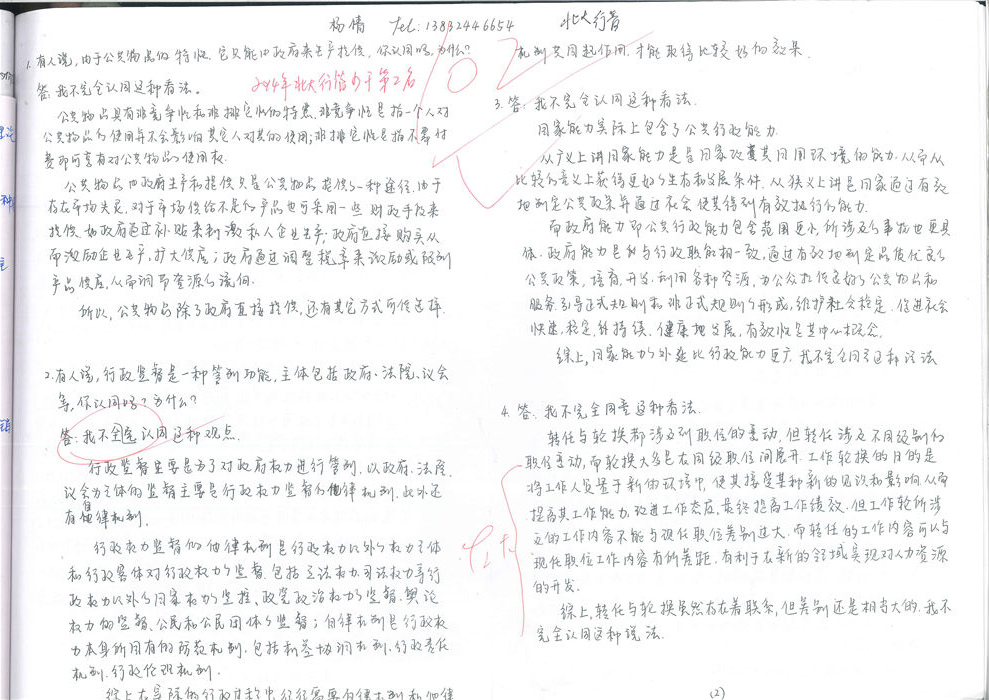 杨倩 Tel: 13832446654 北大行管
1. 有人说,由于公共物品的特性,它只能由政府来生产提供,你认同吗,为什么?
答:我不完全认同这种看法。
2014年北大行管专干第2名
公共物品具有非竞争性和非排它性的特点,非竞争性是指一个人对
公共物品的使用并不会影响其它人对其的使用;非排它性是指不需付
费即可享有对公共物品的使用权.
公共物品由政府生产和提供只是公共物品提供的一种途径.由于
存在市场失灵,对于市场供给不足的产品也可采用一些财政手段来
提供.如政府通过补贴来刺激私人企业生产;政府直接购买从
而激励企业生产,扩大供应;政府通过调整税率来激励或限制
产品供应,从而调节资源的流向.
所以,公共物品除了政府直接提供,还有其它方式可供选择.
2. 有人说,行政监督是一种管制功能,主体包括政府、法院、议会
等,你认同吗?为什么?
答:我不完全认同这种观点.
行政监督主要是为了对政府权力进行管制,以政府、法院、
议会为主体的监督主要是行政权力监督的他律机制,此外还
有自律机制.
行政权力监督的他律机制是行政权力以外的权力主体
和行政客体对行政权力的监督.包括立法权力、司法权力等行
政权力以外的国家权力的监控、政党政治权力的监督、舆论
权力的监督、公民和公民团体的监督;自律机制是行政权
力本身所固有的防范机制,包括利益协调机制、行政责任
机制、行政伦理机制.
综上在实际的行政过程中,往往需要自律机制和他律
机制共同起作用,才能取得比较好的效果.
3. 答:我不完全认同这种看法.
国家能力实际上包含了公共行政能力.
从广义上讲国家能力是国家改变其周围环境的能力.从而从
比较的意义上获得更好的生存和发展条件.从狭义上讲是国家通过有效
地制定公共政策并通过社会使其得到有效执行的能力.
而政府能力即公共行政能力包含范围更小,所涉及的事物也更具
体.政府能力是与行政职能相一致,通过有效地制定品质优良的
公共政策,培育、开发、利用各种资源,为公众提供良好的公共物品和
服务,引导正式规则和非正式规则的形成,维护社会稳定,促进社会
快速、稳定、持续、健康地发展,有效性是其中心概念.
综上,国家能力的外延比行政能力更广,我不完全同意这种说法
4. 答:我不完全同意这种看法.
转任与轮换都涉及到职位的变动,但转任涉及不同级别的
职位变动,而轮换大多是在同级职位间展开.工作轮换的目的是
将工作人员置于新的环境中,使其接受某种新的见识和影响,从而
提高其工作能力,改进工作态度,最终提高工作绩效.但工作轮换所涉
及的工作内容不能与现任职位差别过大.而转任的工作内容可以与
现任职位工作内容有所差距,有利于在新的领域实现对人力资源
的开发.
综上,转任与轮换虽然存在着联系,但差别还是相当大的.我不
完全认同这种说法.
(2)